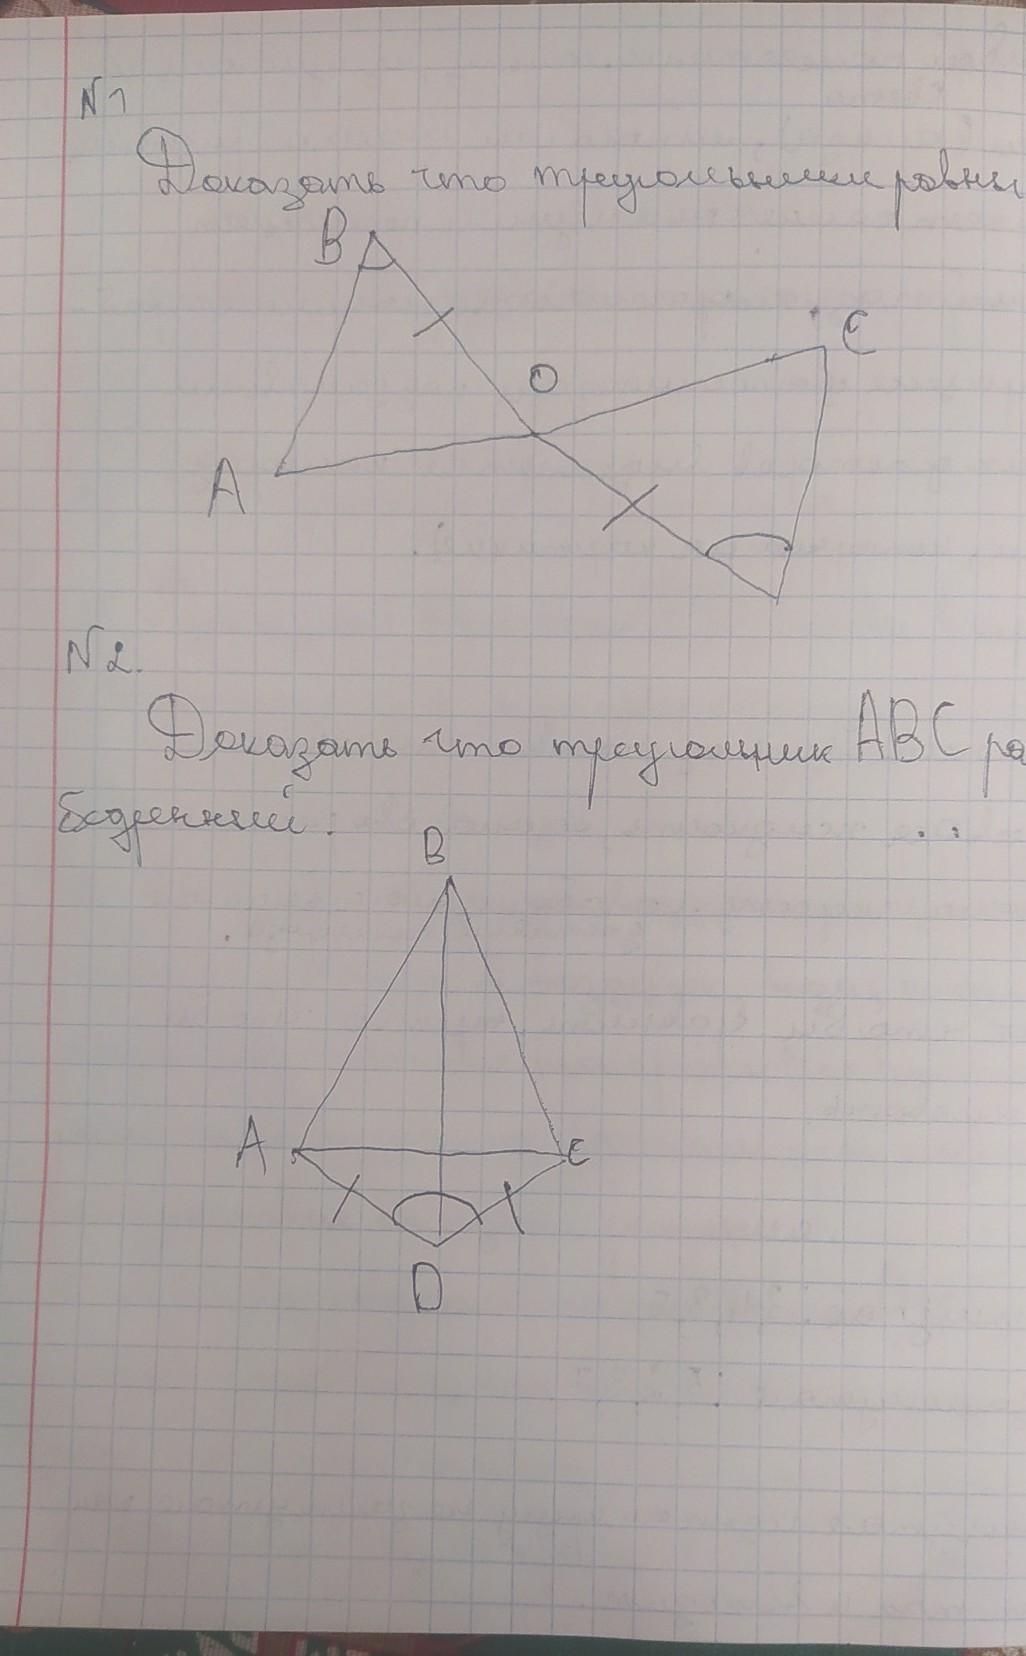 N1
Доказать что треугольники равны
B
C
O
A
N2.
Доказать что треугольник ABC ра
бедренный.
B
A
C
D